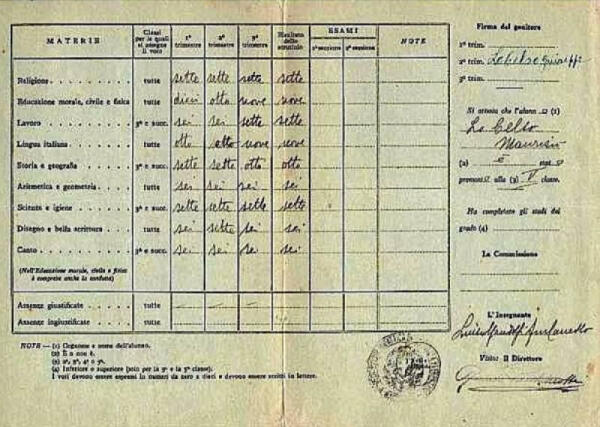 MATERIE
Classi per le quali si assegna il voto
1º trimestre
2º trimestre
3º trimestre
Risultato dello scrutinio
ESAMI
1ª sessione
2ª sessione
NOTE
Religione tutte sette sette sette sette
Educazione morale, civile e fisica tutte dieci otto nove nove
Lavoro 3ª e succ. sei sei sette sette
Lingua italiana tutte otto sette nove nove
Storia e geografia 3ª e succ. sette sette otto otto
Aritmetica e geometria tutte sei sei sei sei
Scienze e igiene 3ª e succ. sette sette sette sette
Disegno e bella scrittura tutte sei sette sei sei
Canto 3ª e succ. sei sei sei sei
(Nell'Educazione morale, civile e fisica è compresa anche la condotta)
Assenze giustificate tutte
Assenze ingiustificate tutte
NOTE — (1) Cognome e nome dell'alunno.
(2) È o non è.
(3) 2ª, 3ª, 4ª o 5ª.
(4) Inferiore o superiore (solo per la 3ª e la 5ª classe).
I voti devono essere espressi in numeri da zero a dieci e devono essere scritti in lettere.
Firma del genitore
1º trim.
2º trim.
3º trim.
Si attesta che l'alunn o (1)
Lo Celso
(2) è stat o
promoss o alla (3) V classe.
Ha completato gli studi del
grado (4)
La Commissione
L'Insegnante
Visto: Il Direttore